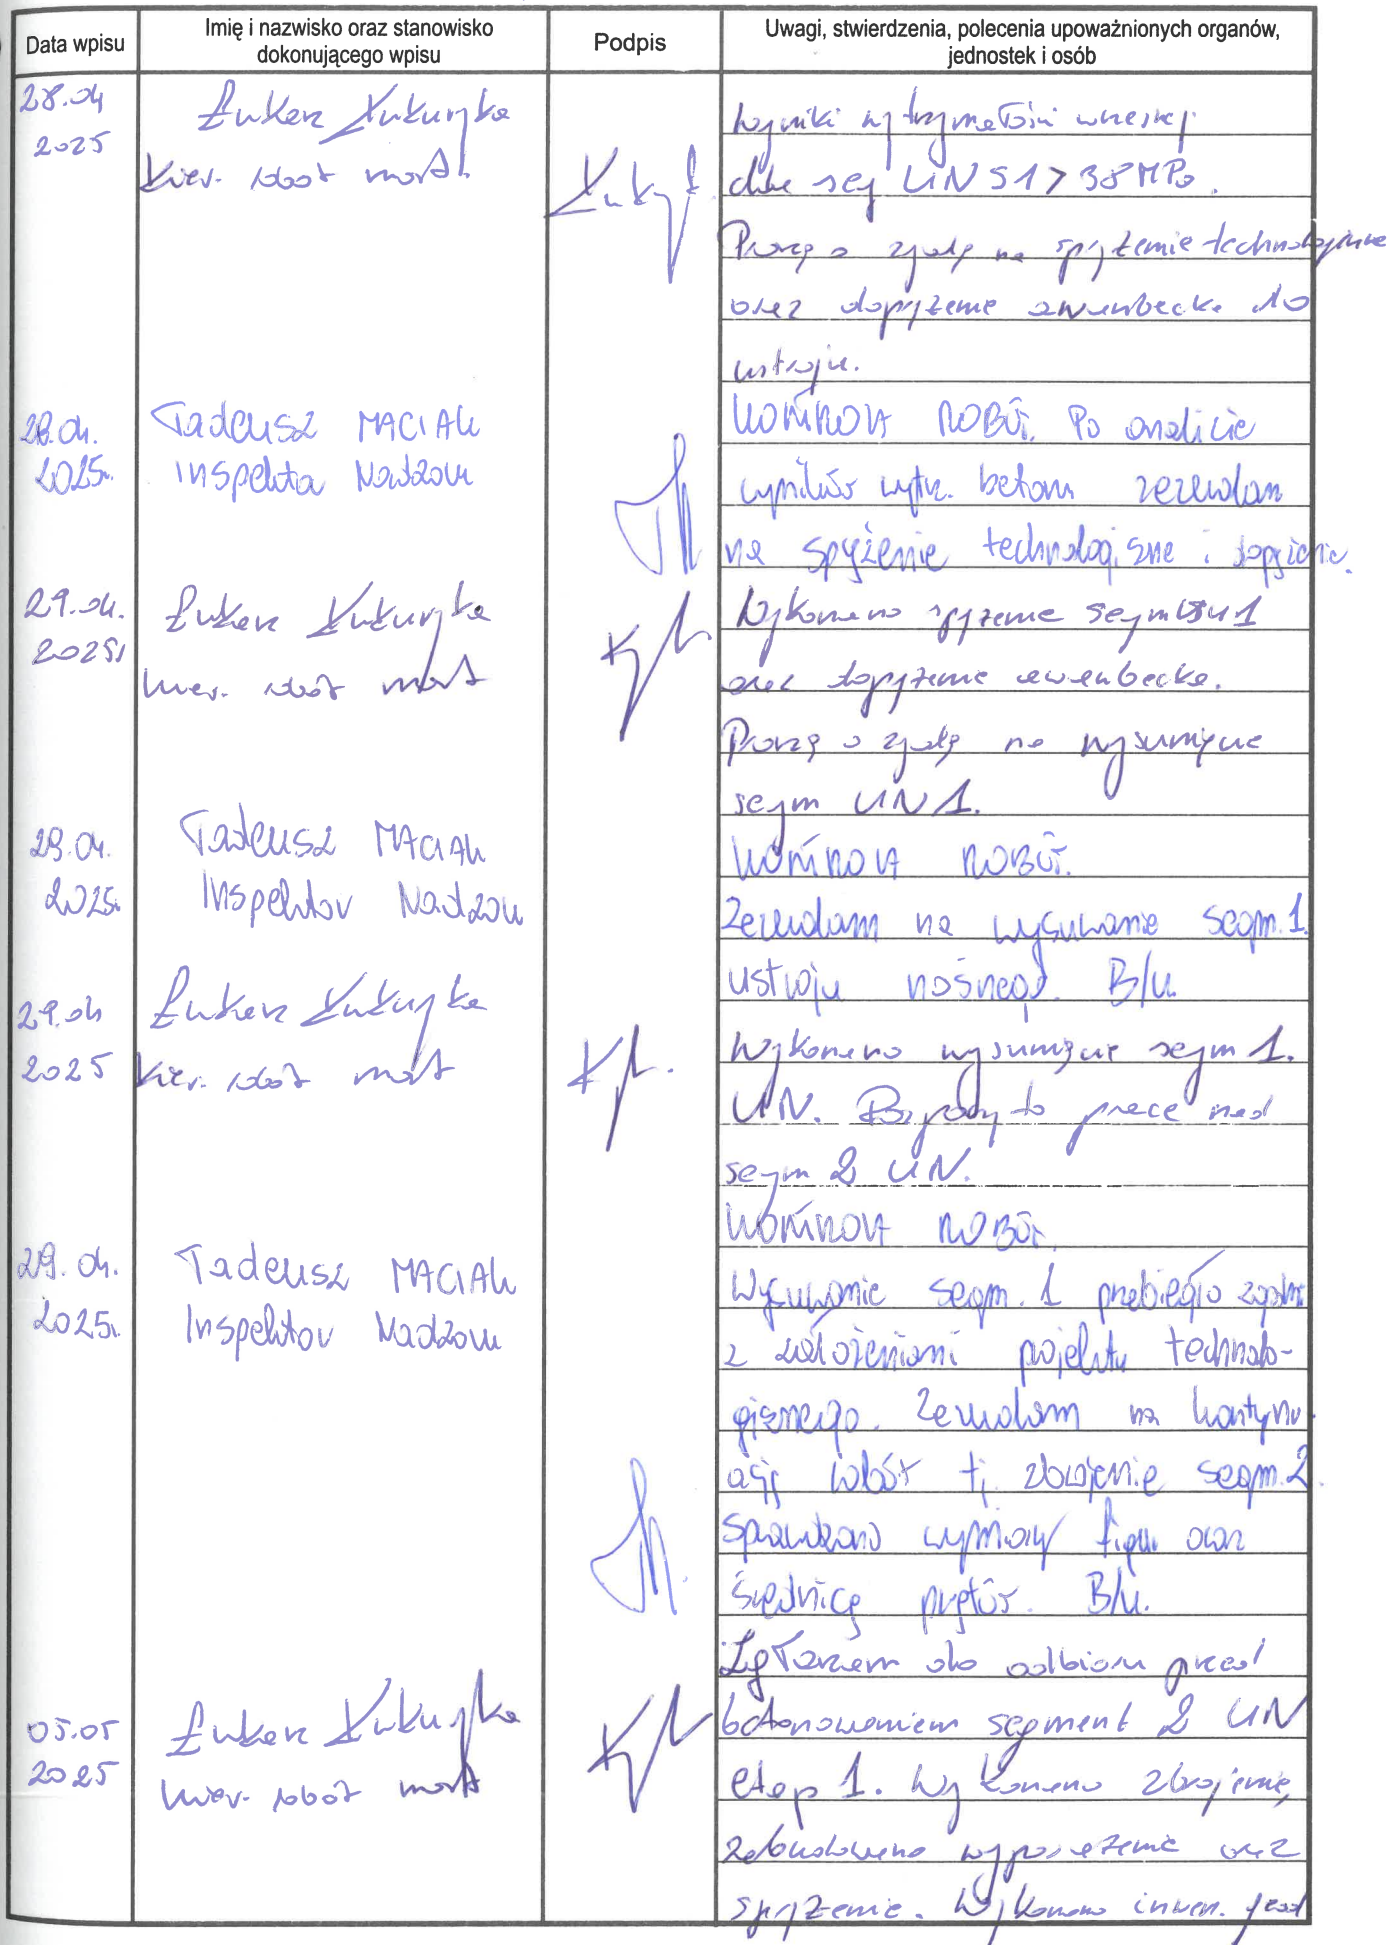 Data wpisu
Imię i nazwisko oraz stanowisko
dokonującego wpisu
Podpis
Uwagi, stwierdzenia, polecenia upoważnionych organów,
jednostek i osób
28.04
2025
Łukasz Kukuryka
Kier. robót most.
Wyniki wytrzymałości wczesnej
dla seg UN S1 > 38 MPa.
Proszę o zgodę na sprężenie technologiczne
oraz doprężenie awanbecka do
ustroju.
28.04.
2025r.
Tadeusz MACIAK
Inspektor Nadzoru
KONTROLA ROBÓT. Po analizie
wyników wytrz. betonu zezwalam
na sprężenie technologiczne i dopręż
29.04.
2025r
Łukasz Kukuryka
kier. robót most
Wykonano sprężenie segmentu 1
oraz doprężenie awanbecka.
Proszę o zgodę na wysunięcie
segm UN 1.
29.04.
2025r.
Tadeusz MACIAK
Inspektor Nadzoru
KONTROLA ROBÓT.
Zezwalam na wysuwanie segm. 1.
ustroju nośnego. B/u.
29.04
2025
Łukasz Kukuryka
Kier. robót most
Wykonano wysunięcie segm 1.
UN. Rozpoczęto prace nad
segm 2 UN.
29.04.
2025r.
Tadeusz MACIAK
Inspektor Nadzoru
KONTROLA ROBÓT.
Wysuwanie segm. 1 przebiegło zgodnie
z założeniami projektu technolo-
gicznego. Zezwalam na kontynu-
ację robót tj. zbrojenie segm. 2.
Sprawdzono wymiary figur oraz
średnicę prętów. B/u.
05.05
2025
Łukasz Kukuryka
kier. robót most
Zgłaszam do odbioru przed
betonowaniem segment 2 UN
etap 1. Wykonano zbrojenie,
zabudowano wyposażenie oraz
sprężenie. Wykonano inwen. geod